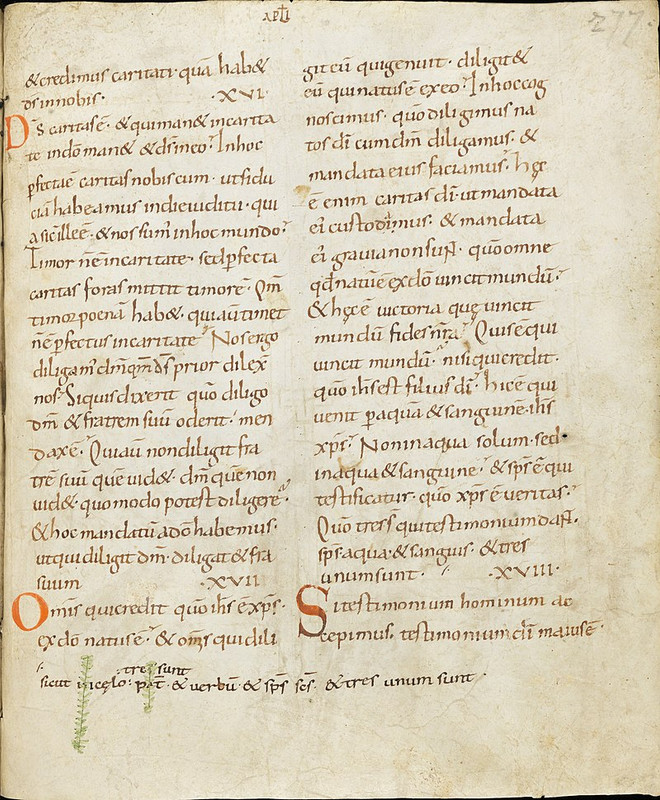 APLI
277.
& credimus caritati· quā hab&
ds in nobis· ·XVI·
Ds caritas ē· & qui man& in carita
te in dō man& & ds in eo· In hoc
pfecta ē caritas nobiscum· ut fidu
ciā habeamus in die iudicii· qui
a sic ille ē· & nos sum' in hoc mundo·
Timor nē in caritate· sed pfecta
caritas foras mittit timorē· Qm̄
timor poenā hab&· qui autē tim&
nē pfectus in caritate· Nos ergo
diligam' dm̄ qm̄ ds prior dilex
nos· Si quis dixerit quō diligo
dm̄ & fratrem suū oderit· men
dax ē· Qui aū non diligit fra
trē suū quē uid&· dm̄ quē non
uid&· quomodo potest diligere·
& hoc mandatū a dō habemus·
ut qui diligit dm̄· diligat & fra
suum ·XVII
Omīs qui credit quō ihs ē xps·
ex dō natus ē· & om̄s qui dili
git eū qui genuit· diligit &
eū qui natus ē ex eo· In hoc cog
noscimus· quō diligimus na
tos dī cum dm̄ diligamus· &
mandata eius faciamus· hęc
ē enim caritas dī· ut mandata
ei custodimus· & mandata
ei grauia non sunt· quō omne
qd natū ē ex dō uincit mundū·
& hęc ē uictoria quę uincit
mundū fides nr̄a· Quis ē qui
uincit mundū· nisi qui credit·
quō ihs est filius dī· hic ē qui
uenit p aquā & sanguinē· ihs
xps· Non in aqua solum· sed
in aqua & sanguine· & sps ē qui
testificatur· quō xps ē ueritas·
Quō tres s qui testimonium dant·
sps· aqua· & sanguis· & tres
unum sunt· ·XVIII·
Si testimonium hominum ac
cepimus· testimonium dī maius ē·
tres sunt
sicut in cęlo· pat & uerbū & sps scs· & tres unum sunt·